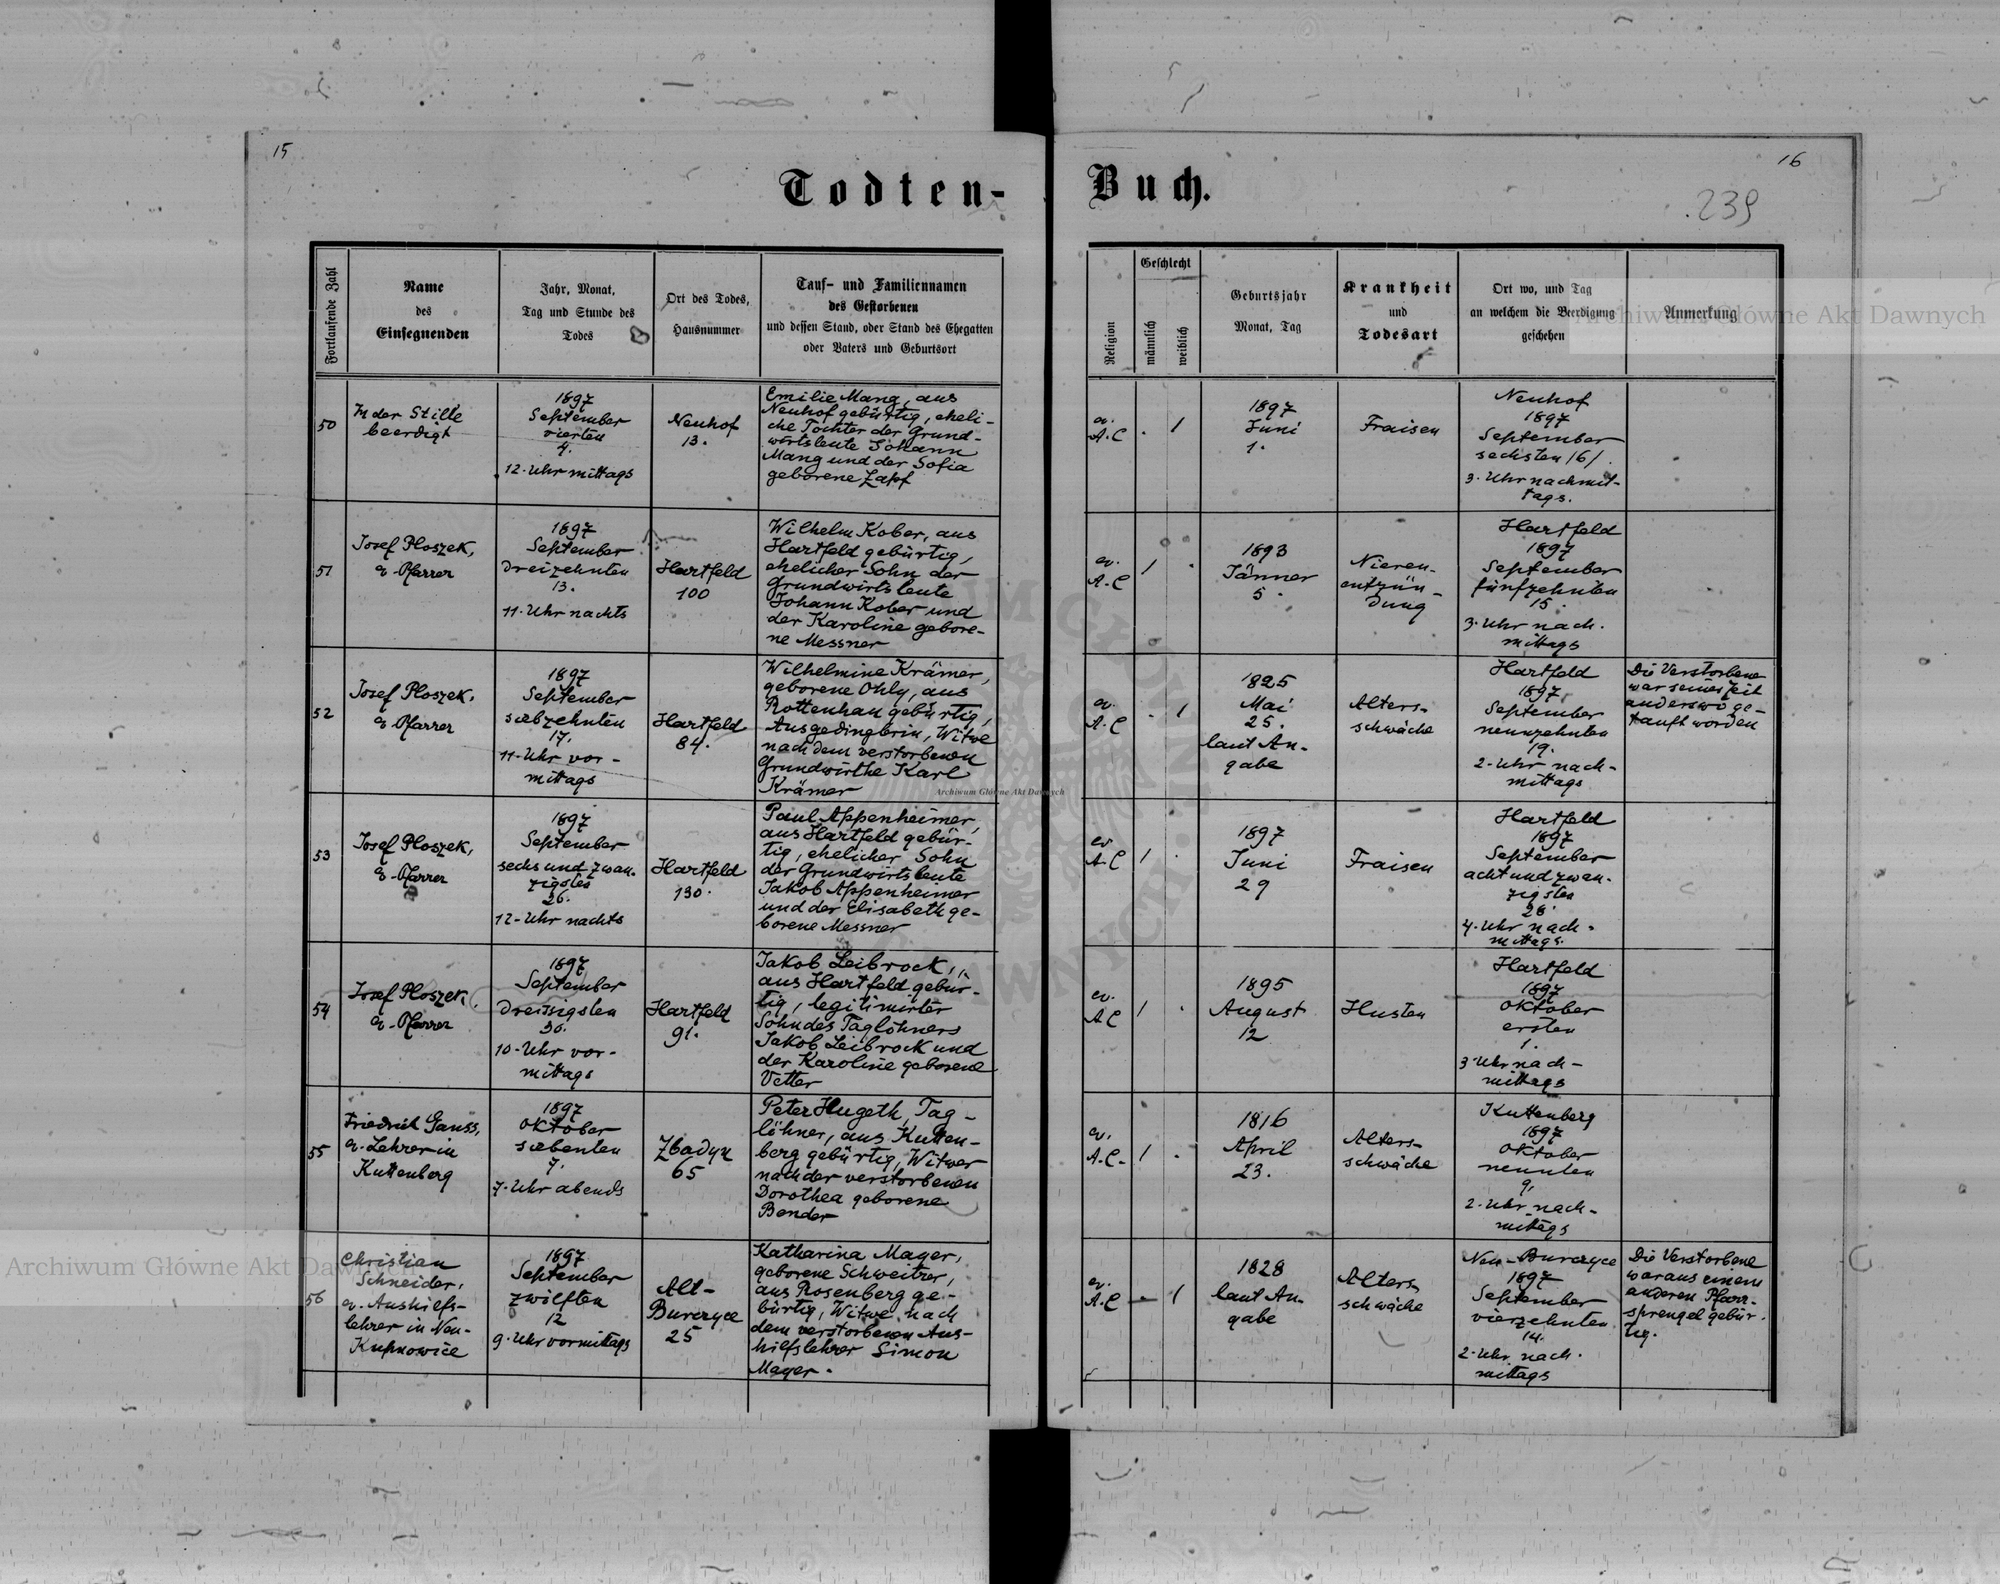 15
16
239
Todten-Buch.
Fortlaufende Zahl
Name
des
Einsegnenden
Jahr, Monat,
Tag und Stunde des
Todes
Ort des Todes,
Hausnummer
Tauf- und Familiennamen
des Gestorbenen
und dessen Stand, oder Stand des Ehegatten
oder Vaters und Geburtsort
Religion
Geschlecht
männlich
weiblich
Geburtsjahr
Monat, Tag
Krankheit
und
Todesart
Ort wo, und Tag
an welchem die Beerdigung
geschehen
Anmerkung
50
In der Stille
beerdigt
1897
September
vierten
4.
12. Uhr mittags
Neuhof
13.
Emilie Mang, aus
Neuhof gebürtig, eheli-
che Tochter der Grund-
wirtsleute Johann
Mang und der Sofia
geborene Zapf
ev.
A.C
.
1
1897
Juni
1.
Fraisen
Neuhof
1897
September
sechsten /6/.
3. Uhr nachmit-
tags.
51
Josef Ploszek,
ev. Pfarrer
1897
September
dreizehnten
13.
11. Uhr nachts
Hartfeld
100
Wilhelm Kober, aus
Hartfeld gebürtig,
ehelicher Sohn der
Grundwirtsleute
Johann Kober und
der Karoline gebore-
ne Messner
ev.
A.C
1
.
1893
Jänner
5.
Nieren-
entzün-
dung
Hartfeld
1897
September
fünfzehnten
15.
3. Uhr nach.
mittags
52
Josef Ploszek,
ev. Pfarrer
1897
September
siebzehnten
17.
11. Uhr vor-
mittags
Hartfeld
84.
Wilhelmine Krämer,
geborene Ohly, aus
Rottenhan gebürtig,
Ausgedingbrin, Witwe
nach dem verstorbenen
Grundwirthe Karl
Krämer
ev.
A.C
.
1
1825
Mai
25.
laut An-
gabe
Alters-
schwäche
Hartfeld
1897
September
neunzehnten
19.
2. Uhr nach-
mittags
Die Verstorbene
war seiner Zeit
anderswo ge-
tauft worden
53
Josef Ploszek,
ev. Pfarrer
1897
September
sechs und zwan-
zigstes
26.
12. Uhr nachts
Hartfeld
130.
Paul Appenheimer,
aus Hartfeld gebür-
tig, ehelicher Sohn
der Grundwirtsleute
Jakob Appenheimer
und der Elisabeth ge-
borene Messner
ev
A.C
1
.
1897
Juni
29
Fraisen
Hartfeld
1897
September
acht und zwan-
zigsten
28.
4. Uhr nach-
mittags.
54
Josef Ploszek,
ev. Pfarrer
1897
September
dreissigsten
30.
10. Uhr vor-
mittags
Hartfeld
91.
Jakob Leibrock,
aus Hartfeld gebür-
tig, legitimirter
Sohn des Taglöhners
Jakob Leibrock und
der Karoline geborene
Vetter
ev.
A.C
1
.
1895
August
12
Husten
Hartfeld
1897
Oktober
ersten
1.
3 Uhr nach-
mittags
55
Friedrich Gauss,
ev. Lehrer in
Kuttenberg
1897
Oktober
siebenten
7.
7. Uhr abends
Zbadyn
65
Peter Hugeth, Tag-
löhner, aus Kutten-
berg gebürtig, Witwer
nach der verstorbenen
Dorothea geborene
Bender
ev.
A.C.
1
.
1816
April
23.
Alters-
schwäche
Kuttenberg
1897
Oktober
neunten
9.
2. Uhr nach-
mittags
56
Christian
Schneider,
ev. Aushilfs-
lehrer in Neu-
Kupnowice
1897
September
zwölften
12
9. Uhr vormittags
Alt-
Burczyce
25
Katharina Mayer,
geborene Schweitzer,
aus Rosenberg ge-
bürtig, Witwe nach
dem verstorbenen Aus-
hilfslehrer Simon
Mayer.
ev.
A.C
-
1
1828
laut An-
gabe
Alters
schwäche
Neu-Burczyce
1897
September
vierzehnten
14.
2. Uhr nach-
mittags
Die Verstorbene
war aus einem
anderen Pfarr-
sprengel gebür-
tig.
Archiwum Główne Akt Dawnych
Archiwum Główne Akt Dawnych
Archiwum Główne Akt Dawnych